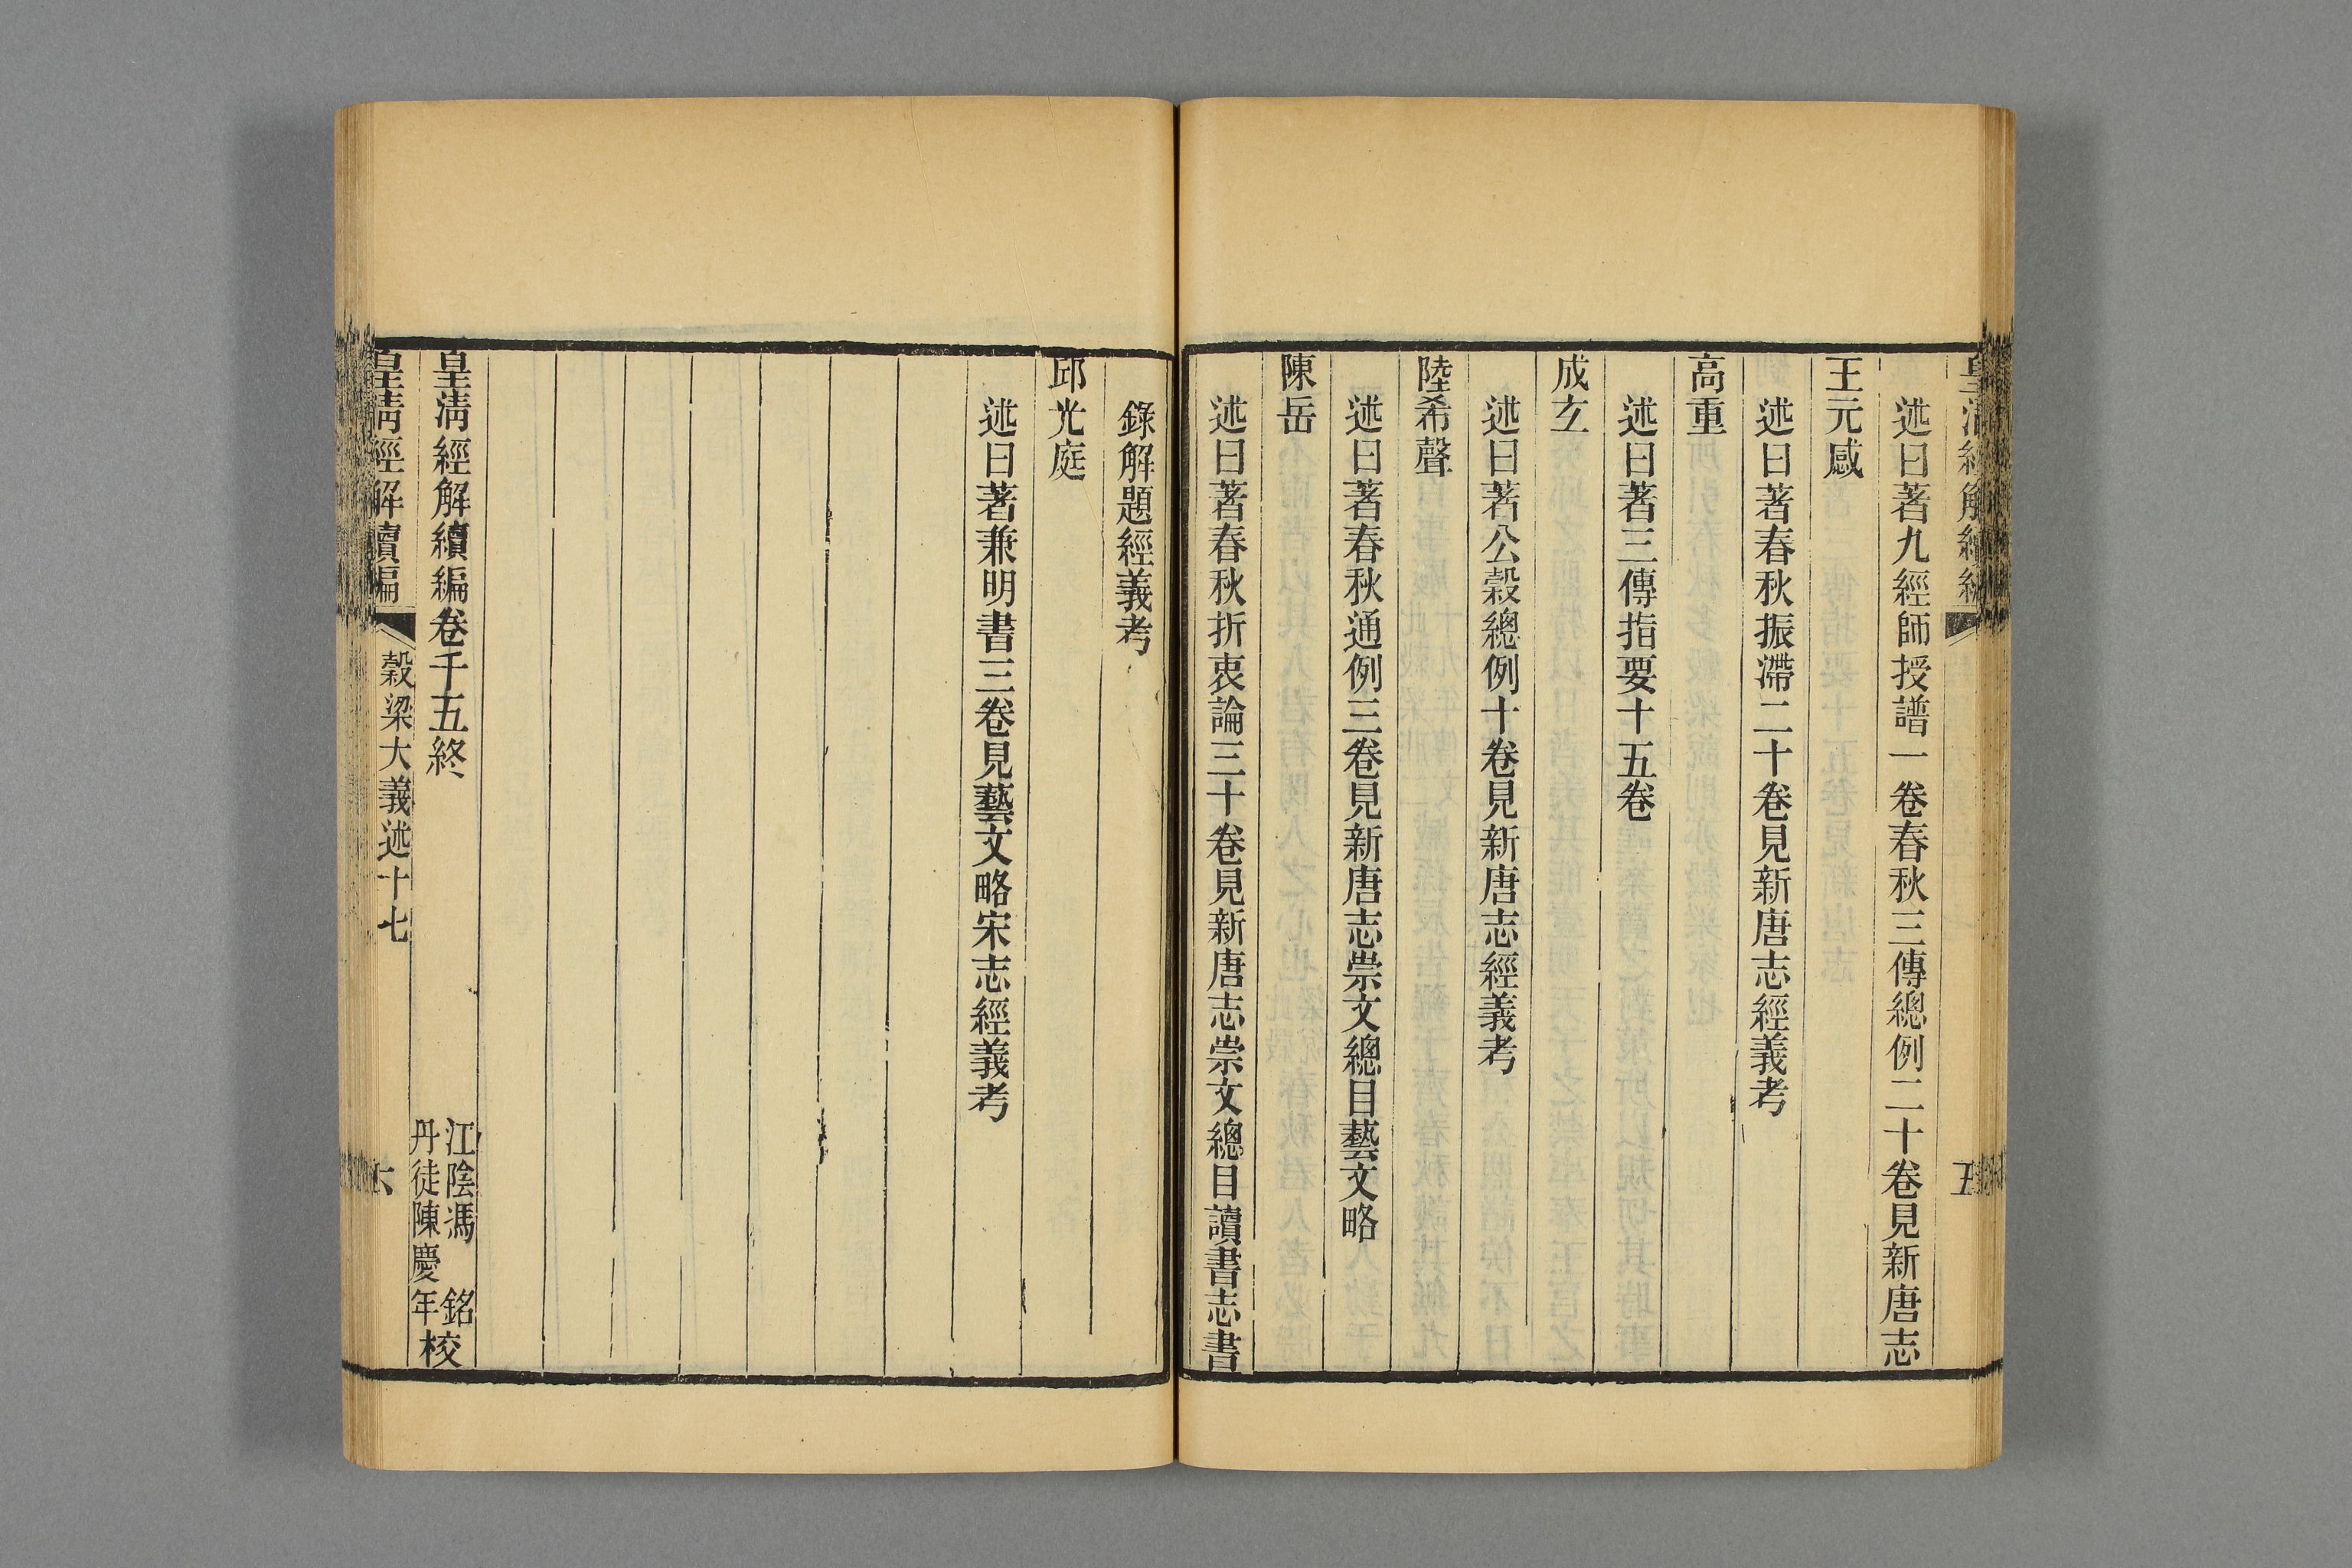 述曰著九經師授譜一卷春秋三傳總例二十卷見新唐志
王元感
述曰著春秋振滯二十卷見新唐志經義考
高重
述曰著三傳指要十五卷
成玄
述曰著公穀總例十卷見新唐志經義考
陸希聲
述曰著春秋通例三卷見新唐志崇文總目藝文略
陳岳
述曰著春秋折衷論三十卷見新唐志崇文總目讀書志書
五
錄解題經義考
邱光庭
述曰著兼明書三卷見藝文略宋志經義考
皇淸經解續編卷千五終
江陰馮銘
丹徒陳慶年
校
皇淸經解續編
穀梁大義述十七
六